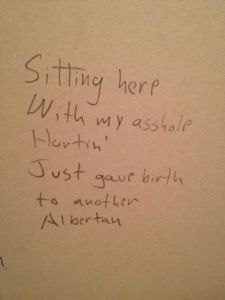 Sitting here
With my asshole
Hurtin'
Just gave birth
to another
Albertan